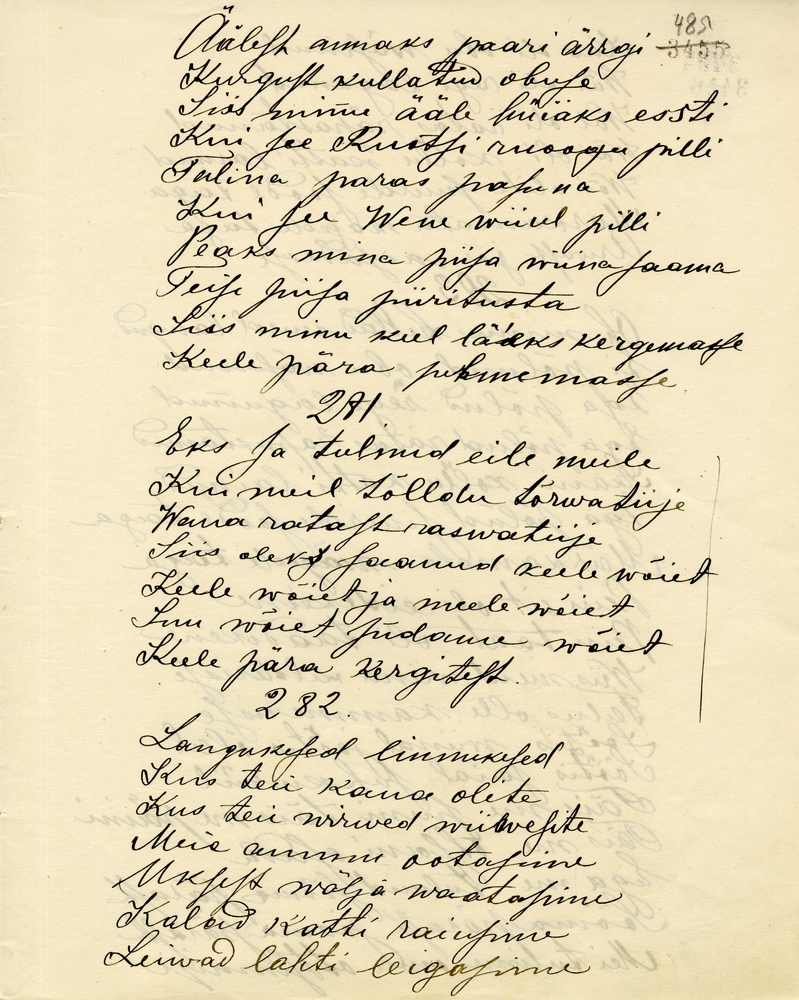 485
3455
Äälest annaks paari ärrgi
Kurgust kullatud obuse
Siis minu ääle hüiäks essti
Kui see Ruotsi ruoogu pilli
Talina paras pasuna
Kui see Wene wiiul pilli
Peaks mina piisa wiina saama
Teise piisa piiritusta
Siis minu keel lääks kergemasse
Keele pära pehmemasse
281
Eks ja tulnud eile meile
Kui meil tõlldu tõrwatiije
Wana ratast raswatiije
Siis oleks saanud keele wõiet
Keele wõiet ja meele wõiet
Suu wõiet südame wõiet
Keele pära kergitest.
282.
Langukesed linnukesed
Kus teie kaua olite
Kus teie wirwed wiibesite
Meie ammu ootasime
Uksest wälja waatasime
Kalad katti raiusime
Leiwad lahti leigasime